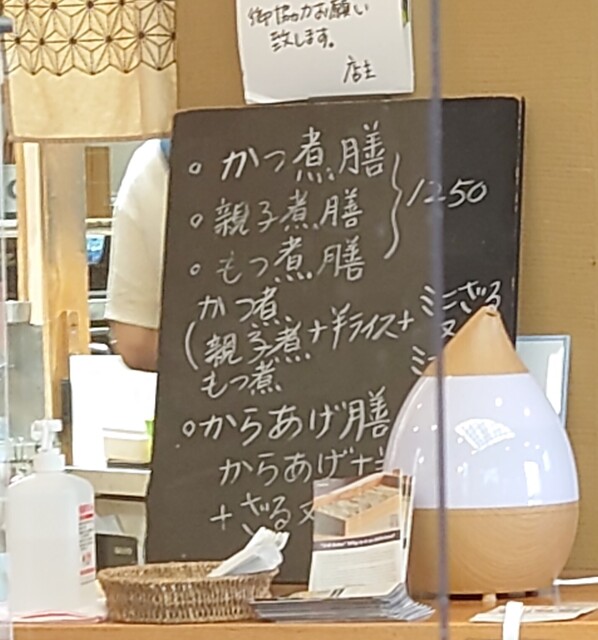 御協力お願い
致します。
店主
○かつ煮膳
○親子煮膳
○もつ煮膳
1250
かつ煮
親子煮
もつ煮
+半ライス+
ミニざる
又
ミニ
○からあげ膳
からあげ+
+ざる又